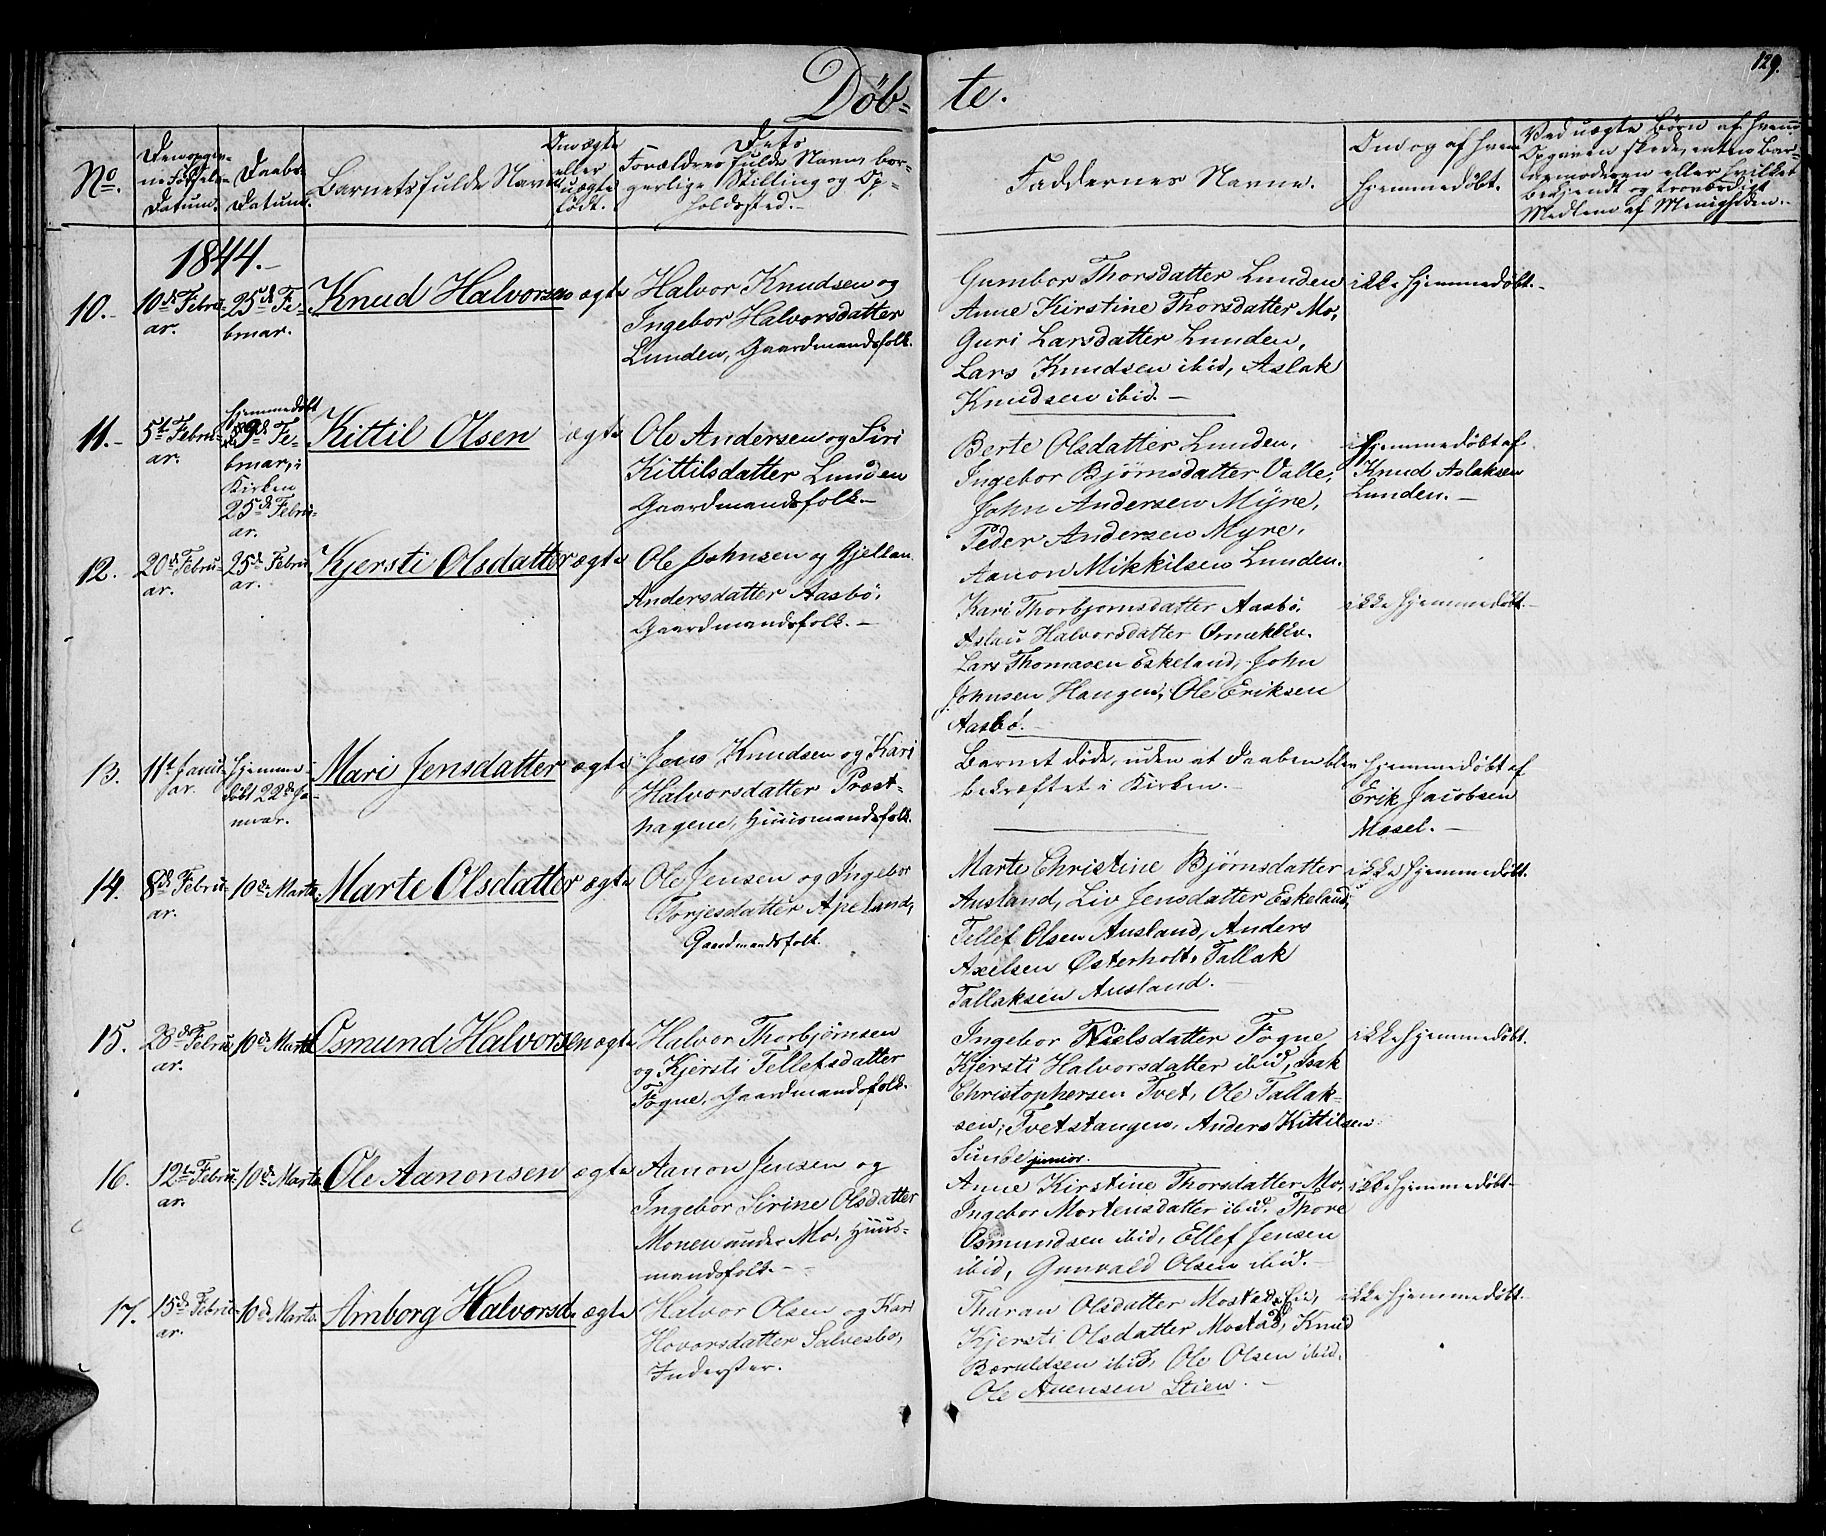 129.
Døb-te.
No.
Den opgivne Fødsels Datum.
Daabs Datum.
Barnets fulde Navn
Om ægte eller uægte født.
Dets Forældres fulde Navn, borgerlige Stilling og Opholdssted.-
Faddernes Navne.
Om og af hvem hjemmedøbt.
Ved uægte Børn af hvem Opgaven skede, enten Barnemoderen eller hvilket bekjendt og troværdigt Medlem af Menigheden.-
1844.-
10.-
10de Februar.
25de Februar.
Knud Halvorsen
ægte
Halvor Knudsen og
Ingebor Halvorsdatter
Lunden, Gaardmandsfolk.
Gumbor Thorsdatter Lunden
Anne Kirstine Thorsdatter Mo,
Guri Larsdatter Lunden,
Lars Knudsen ibid, Aslak
Knudsen ibid.-
ikke hjemmedøbt.-
11.-
5te Februar.
hjemmedøbt 9de Februar, i Kirken 25de Februar.
Kittil Olsen
ægte
Ole Andersen og Siri
Kittilsdatter Lunden
Gaardmandsfolk.-
Berte Olsdatter Lunden,
Ingebor Bjørnsdatter Valle,
John Andersen Myre,
Peder Andersen Myre,
Aanon Mikkilsen Lunden.
hjemmedøbt af
Knud Aslaksen
Lunden.-
12.
20de Februar.
25de Februar.
Kjersti Olsdatter
ægte
Ole Johnsen og Gjellau
Andersdatter Aasbø,
Gaardmandsfolk.-
Kari Thorbjornsdatter Aasbø,
Aslau Halvorsdatter Ørnekliv.
Lars Thomasen Eskeland, John
Johnsen Haugen, Ole Eriksen
Aasbø.-
ikke hjemmedøbt.-
13.
11te Januar.
hjemmedøbt 22de Januar.
Mari Jensdatter
ægte
Jens Knudsen og Kari
Halvorsdatter Præst-
hagene, Huusmandsfolk.
Barnet døde, uden at Daaben blev
bekræftet i Kirken.-
hjemmedøbt af
Erik Jacobsen
Mosel.-
14.
8de Februar.
10de Marts.
Marte Olsdatter
ægte
Ole Jensen og Ingebor
Torjesdatter Apeland,
Gaardmandsfolk.
Marte Christine Bjørnsdatter
Ausland, Liv Jensdatter Eskeland,
Tellef Olsen Ausland, Anders
Axelsen Østerholt, Tallak
Tallaksen Ausland.-
ikke hjemmedøbt.
15.
23de Februar.
10de Marts
Osmund Halvorsen
ægte
Halvor Thorbjørnsen
og Kjersti Tellefsdatter
Fogne, Gaardmandsfolk.
Ingebor Nielsdatter Fogne,
Kjersti Halvorsdatter ibid, Isak
Christophersen Tvet, Ole Tallak-
sen, Tvetstangen, Anders Kittilsen
Sunde junior.
ikke hjemmedøbt.
16.
12te Februar.
10de Marts.
Ole Aanonsen
ægte
Aanon Jensen og
Ingebor Sirine Olsdatter
Monen under Mo, Huus-
mandsfolk.-
Anne Kirstine Thorsdatter Mo,
Ingebor Mortensdatter ibid. Thore
Osmundsen ibid, Ellef Jensen
ibid, Gunvald Olsen ibid.-
ikke hjemmedøbt-
17.
15de Februar.
10de Marts.
Amborg Halvorsd.
ægte
Halvor Olsen og Kari
Hovorsdatter Salvesbo,
Inderster.
Tharan Olsdatter Mostadlie,
Kjersti Olsdatter Mostad, Knud
Beruldsen ibid, Ole Olsen ibid.
Ole Auensen Stien.-
ikke hjemmedøbt.